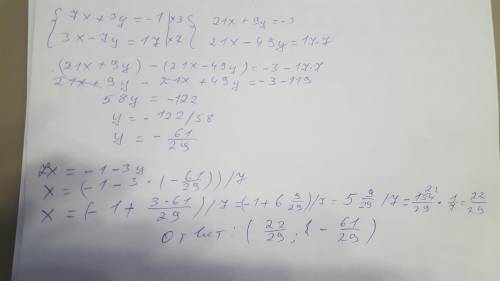 { 7x + 3y = -1 | ×3 { 21x + 9y = -3
3x - 7y = 17 | ×7 21x - 49y = 17·7
(21x + 9y) - (21x - 49y) = -3 - 17·7
21x + 9y - 21x + 49y = -3 - 119
58y = -122
y = -122/58
y = - 61/29
7x = -1 - 3y
x = (-1 - 3 · (- 61/29)) / 7
x = (- 1 + 3·61/29) / 7 = (-1 + 6 9/29) / 7 = 5 9/29 / 7 = 154/29 · 1/7 = 22/29
Ответ: ( 22/29 ; - 61/29 )